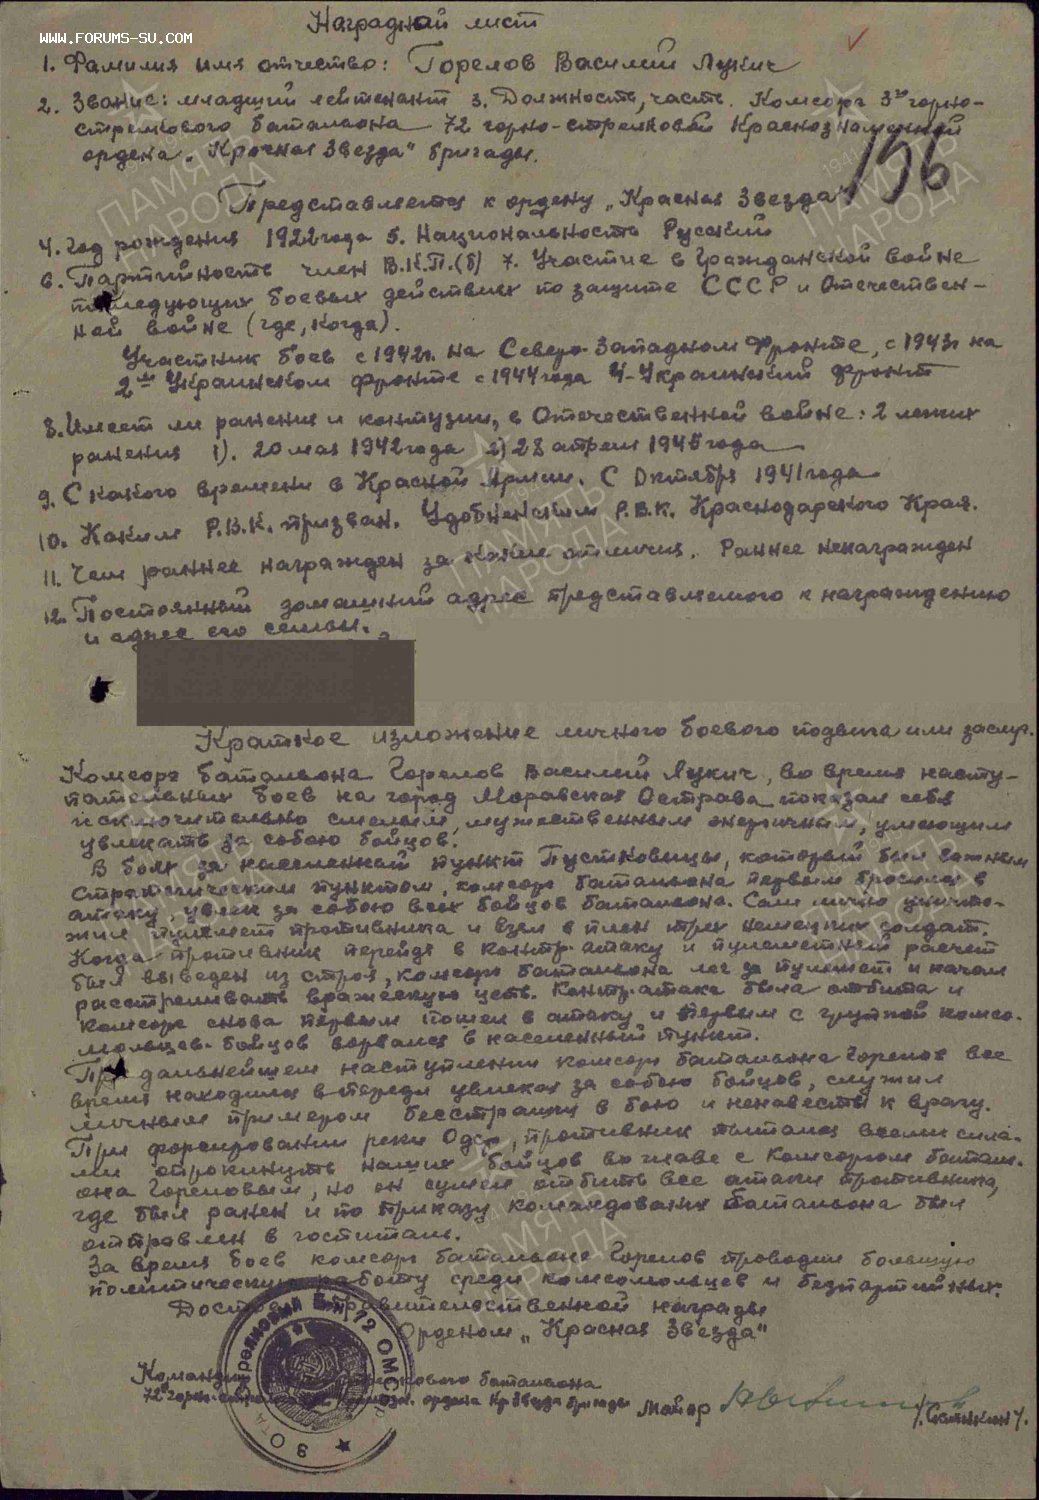 WWW.FORUMS-SU.COM
Наградной лист
1. Фамилия имя отчество: Горелов Василий Лукич
2. Звание: младший лейтенант 3. Должность, часть. Комсорг 3го горно-
стрелкового баталиона 72 горно-стрелковой Краснознаменной
ордена „Красная Звезда" бригады.
156
Представляется к ордену „Красная Звезда"
4. Год рождения 1922 года 5. Национальность Русский
6. Партийность член В.К.П.(б) 7. Участие в Гражданской войне
последующих боевых действиях по защите СССР и Отечествен-
ной войне (где, когда).
Участник боев с 1942г. на Северо-Западном Фронте, с 1943г на
2ом Украинском фронте с 1944 года 4-Украинский фронт
8. Имеет ли ранения и контузии, в Отечественной войне: 2 легких
ранения 1). 20 мая 1942 года 2) 28 апреля 1945 года
9. С какого времени в Красной Армии. С Октября 1941 года
10. Каким Р.В.К. призван. Удобненским Р.В.К. Краснодарского Края.
11. Чем раннее награжден за какие отличия. Раннее ненагражден
12. Постоянный домашний адрес представляемого к награждению
и адрес его семьи.
Краткое изложение личного боевого подвига или заслуг.
Комсорг баталиона Горелов Василий Лукич, во время насту-
пательных боев на город Моравская Острава показал себя
исключительно смелым, мужественным энергичным, умеющим
увлекать за собою бойцов.
В боях за населенный пункт Пустковецы, который был важным
стратегическим пунктом, комсорг баталиона первым бросился в
атаку, увлек за собою всех бойцов баталиона. Сам лично уничто-
жил пулемет противника и взял в плен трех немецких солдат.
Когда противник перейдя в контр-атаку и пулеметный расчет
был выведен из строя, комсорг баталиона лег за пулемет и начал
расстреливать вражескую цепь. Контр-атака была отбита и
комсорг снова первым пошел в атаку и первым с группой комсо-
мольцев-бойцов ворвался в населенный пункт.
При дальнейшем наступлении комсорг баталиона Горелов все
время находился впереди увлекая за собою бойцов, служил
личным примером бесстрашия в бою и ненависти к врагу.
При форсировании реки Одер, противник пытался всеми сила-
ми опрокинуть наших бойцов во главе с Комсоргом батали-
она Гореловым, но он сумел отбить все атаки противника,
где был ранен и по приказу командования баталиона был
отправлен в госпиталь.
За время боев комсорг баталиона Горелов проводил большую
политическую работу среди комсомольцев и безпартийных.
Достоин правительственной награды
Орденом „Красная Звезда"
Командир стрелкового баталиона
72й горно-стрелковой ордена Кр. Звезда бригады Майор